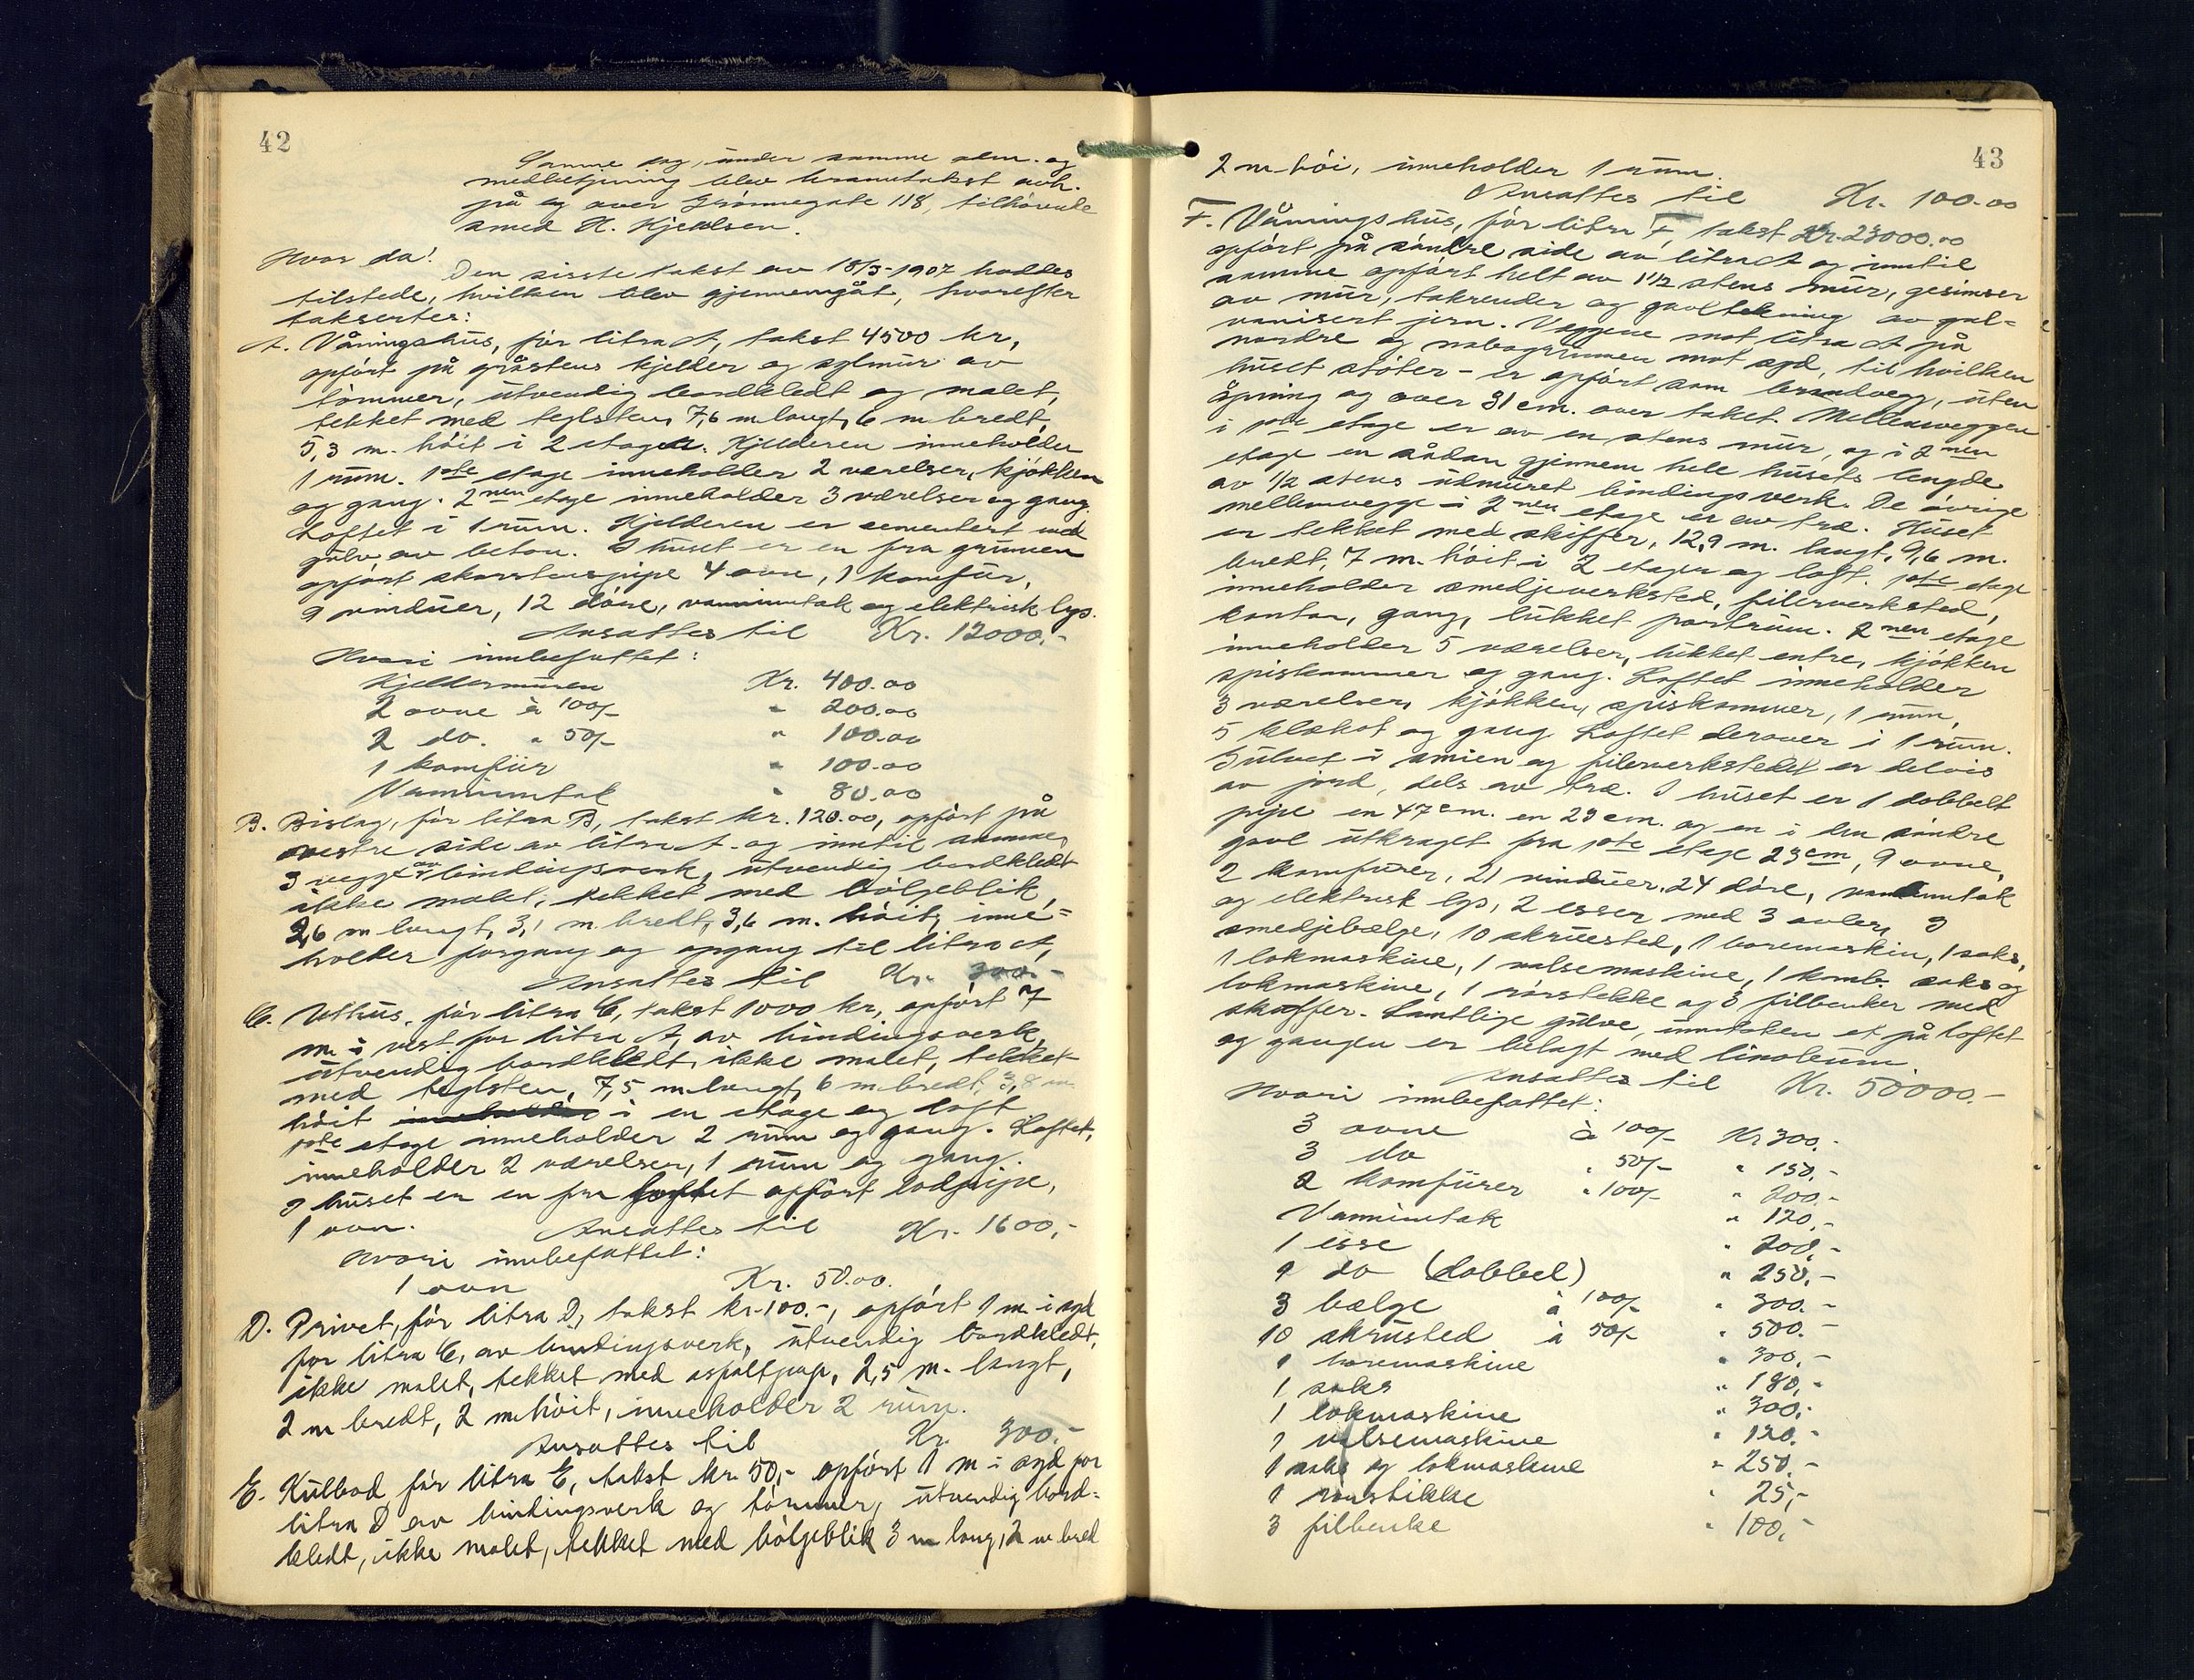 42
Samme dag, under samme adm. og
medbetjening blev branntakst avh.
på og over Grønnegate 118, tilhørende
smed H. Kjeldsen.
Hvor da!
Den sisste takst av 18/3-1907 haddes
tilstede, hvilken blev gjennemgåt, hvorefter
taksertes:
A. Våningshus, før litra A, takst 4500 kr,
opført på gråstens kjelder og sylmur av
tømmer, utvendig bordkledt og malet,
tekket med teglsten, 7,6 m langt, 6 m bredt,
5,3 m. høit i 2 etager. Kjelderen inneholder
1 rum. 1ste etage inneholder 2 værelser, kjøkken
og gang. 2nen etage inneholder 3 værelser og gang.
Loftet i 1 rum. Kjelderen er cementert med
gulv av beton. I huset er en fra grunnen
opført skorstenspipe 4 ovne, 1 komfur,
9 vinduer, 12 døre, vanninntak og elektrisk lys.
Ansattes til Kr. 12000.-
Hvori innbefattet:
Kjeldermuren Kr. 400.00
2 ovne à 100/- " 200.00
2 do. " 50/- " 100.00
1 komfür " 100.00
Vanninntak " 80.00
B. Bislag, før litra B, takst kr. 120.00, opført på
vestre side av litra A. og inntil samme,
3 vegge av bindingsverk, utvendig bordkledt
ikke malet, tekket med bølgeblik,
2,6 m langt, 3,1 m. bredt, 3,6 m. høit, inne=
holder forgang og opgang til litra A,
Ansattes til Kr. 300.-
C. Uthus, før litra C, takst 1000 kr, opført 7
m i vest for litra A, av bindingsverk,
utvendig bordkledt, ikke malet, tekket
med teglsten, 7,5 m langt, 6 m bredt, 3,8 m
høit i en etage og loft
1ste etage inneholder 2 rum og gang. Loftet,
inneholder 2 værelser, 1 rum og gang.
I huset er en fra loftet opført lodpipe,
1 ovn. Ansattes til Kr. 1600,-
Hvori innbefattet:
1 ovn Kr. 50.00.
D. Privet, før litra D, takst kr. 100.-, opført 1 m. i syd
for litra C, av bindingsverk, utvendig bordkledt,
ikke malet, tekket med asfaltpap, 2,5 m. langt,
2 m bredt, 2 m høit, inneholder 2 rum.
Ansattes til Kr. 300.-
E. Kulbod før litra E, takst kr. 50,- opført 1 m i syd for
litra D av bindingsverk og tømmer, utvendig bord-
kledt, ikke malet, tekket med bølgeblik 3 m lang, 2 m bred
43
2 m høi, inneholder 1 rum.
Ansattes til Kr. 100.00
F. Våningshus, før litra F, takst Kr. 23000.00
opført på søndre side av litra A og inntil
samme opført helt av 1 1/2 stens mur, gesimser
av mur, takrender og gavltekning av gal=
vanisert jern. Veggene mot litra A på
nordre og nabogrunnen mot syd, til hvilken
huset støter - er opført som brandvegg, uten
åpning og over 31 cm. over taket. Mellemveggen
i 1ste etage er av en stens mur, og i 2nen
etage en sådan gjennem hele husets lengde
av 1/2 stens utmuret bindingsverk. De øvrige
mellemvegge i 2nen etage er av træ. Huset
er tekket med skiffer, 12,9 m. langt, 9,6 m.
bredt, 7 m. høit i 2 etager og loft. 1ste etage
inneholder smedjeverksted, filerverksted,
kontor, gang, lukket portrum. 2nen etage
inneholder 5 værelser, lukket entre, kjøkken
spiskammer og gang. Loftet inneholder
3 værelser, kjøkken, spiskammer, 1 rum,
5 klækot og gang Loftet derover i 1 rum.
Gulvet i smien og filerverkstedet er delvis
av jord, dels av træ. I huset er 1 dobbelt
pipe en 47 cm. en 23 cm. og en i den søndre
gavl utkraget fra 1ste etage 23 cm, 9 ovne,
2 komfurer, 21 vinduer, 24 døre, vanninntak
og elektrisk lys, 2 esser med 3 avler, 3
smedjebælge, 10 skruested, 1 boremaskin, 1 saks,
1 lokmaskine, 1 valsemaskine, 1 komb. saks og
lokmaskine, 1 rørstekke og 3 filbenker med
skuffer. Samtlige gulve, unntaken et på loftet
og gangen er belagt med linoleum
Ansattes til Kr. 50000.-
Hvori innbefattet:
3 ovne à 100/- Kr 300.-
3 do " 50/- " 150,-
2 komfürer " 100/- " 200.-
Vanninntak " 120,-
1 esse " 200,-
1 do (dobbel) " 250,-
3 bælge à 100/- " 300.-
10 skrusted à 50/- " 500.-
1 boremaskine " 300,-
1 saks " 180,-
1 lokmaskine " 300,-
1 valsemaskine " 120.-
1 saks og lokmaskine " 250.-
1 rørstikke " 25,-
3 filbenke " 100,-